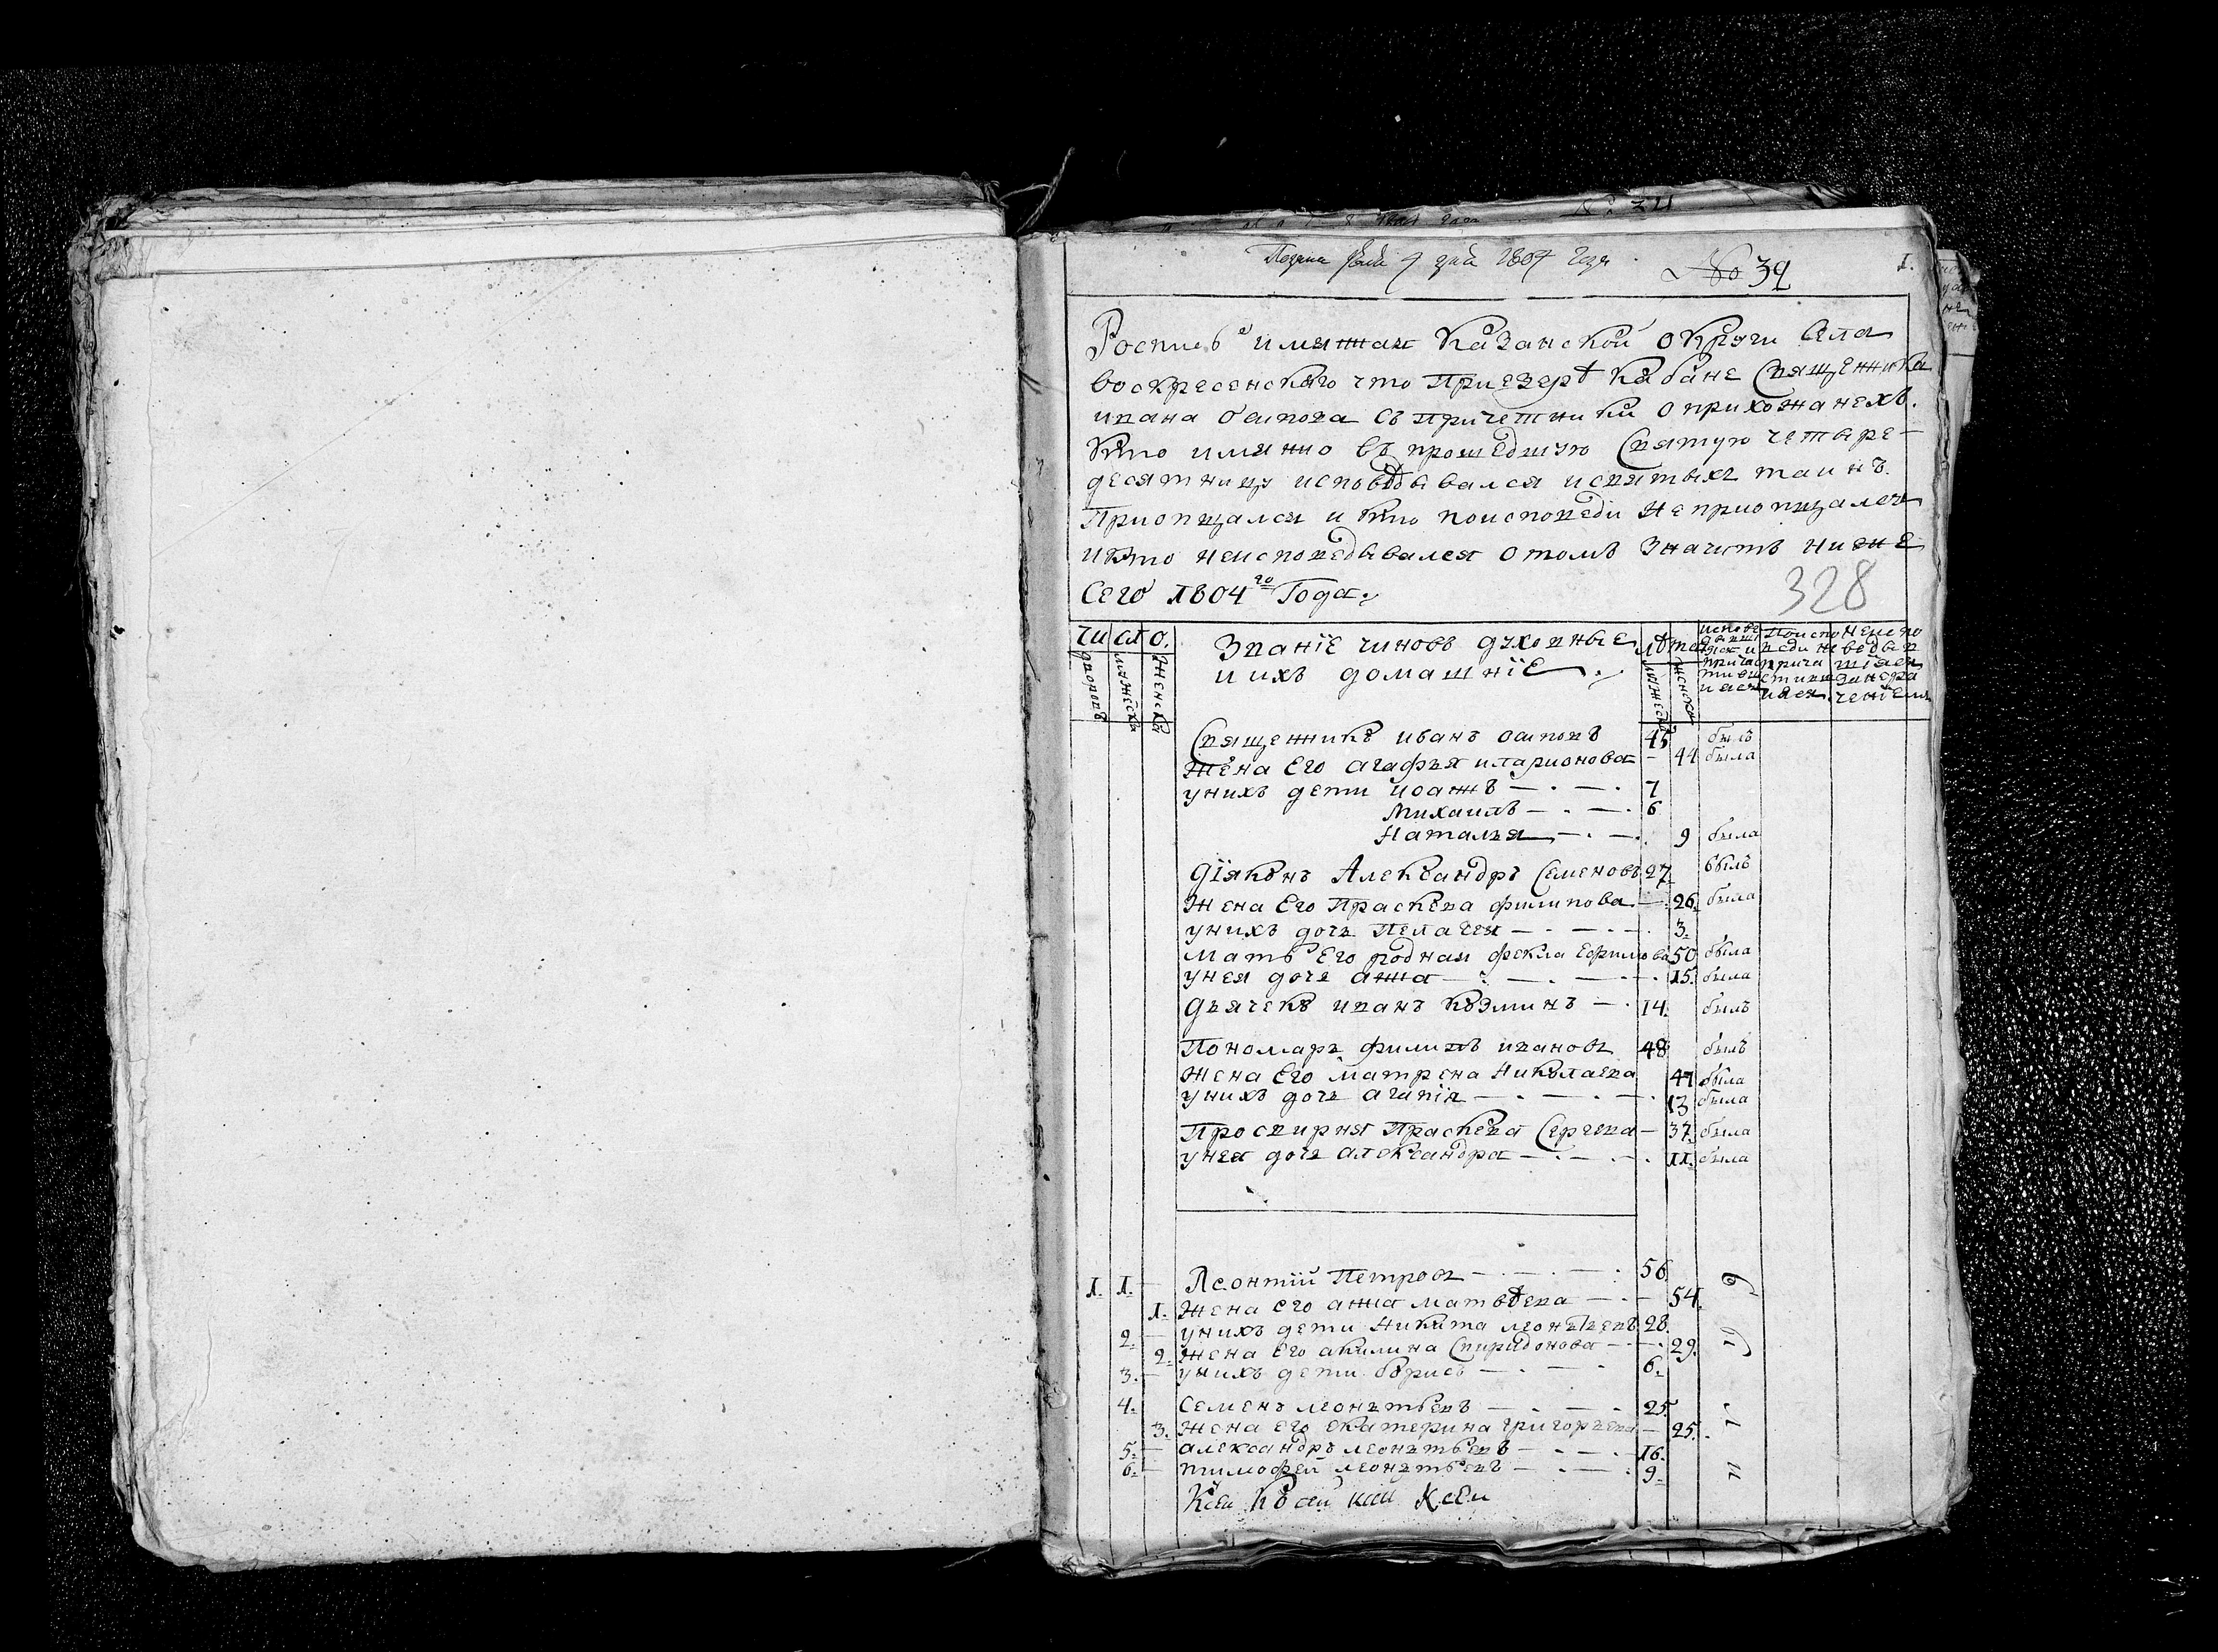 1804 года
No 39
1.
Роспись имянная казанской округи села
воскресенского что приезерѣ кабане священника
ивана осипова съ причетники о прихожанехъ.
кто имянно въ прошедшую святую четыре-
десятницу исповѣдывался и святыхъ таинъ
приопщался и кто поисповеди не приопщался
и кто неисповедывался отомъ значитъ ниже
сего 1804 го Года.
328
число.
дворовъ
мужеска
женска
Звание чиновъ духовные
и ихъ домашнїе.
лѣта
мужеска
женска
Священникъ иванъ осиповъ 45 былъ
жена Его агафья иларионова — 44 была
унихъ дети иоаннъ — . — . 7
михаилъ — . — . 6
наталья — . — . 9 была
дїяконъ Александръ Семеновъ 27. былъ
жена Его праскева филипова — 26. была
унихъ дочь пелагея — . — . — . 3.
мать Его родная фекла Ефимова 50 была
унея дочь анна — . — . — . 15. была
дьячекъ иванъ козминъ — . 14. былъ
Пономарь филипъ ивановъ 48 былъ
жена Его матрена николаева 47 была
унихъ дочь агапїя — . — . — . 13 была
просвирня праскева Сергева — 37. была
унея дочь александра — . — . — . 11. была
1. 1. — Леонтїй Петровъ — . — . — . 56.
1. жена его анна матвѣева — . — 54.
2. — унихъ дети никита леонтьевъ 28.
2. жена Его акилина Спиридонова — . — . 29.
3. — унихъ дети борисъ — . — . 6.
4. семенъ леонтьевъ — . — . 25.
3. жена его екатерина григорьева — 25.
5. — александръ леонтьевъ — . — . 16.
6. — тимофей леонтьевъ — . — . 9.